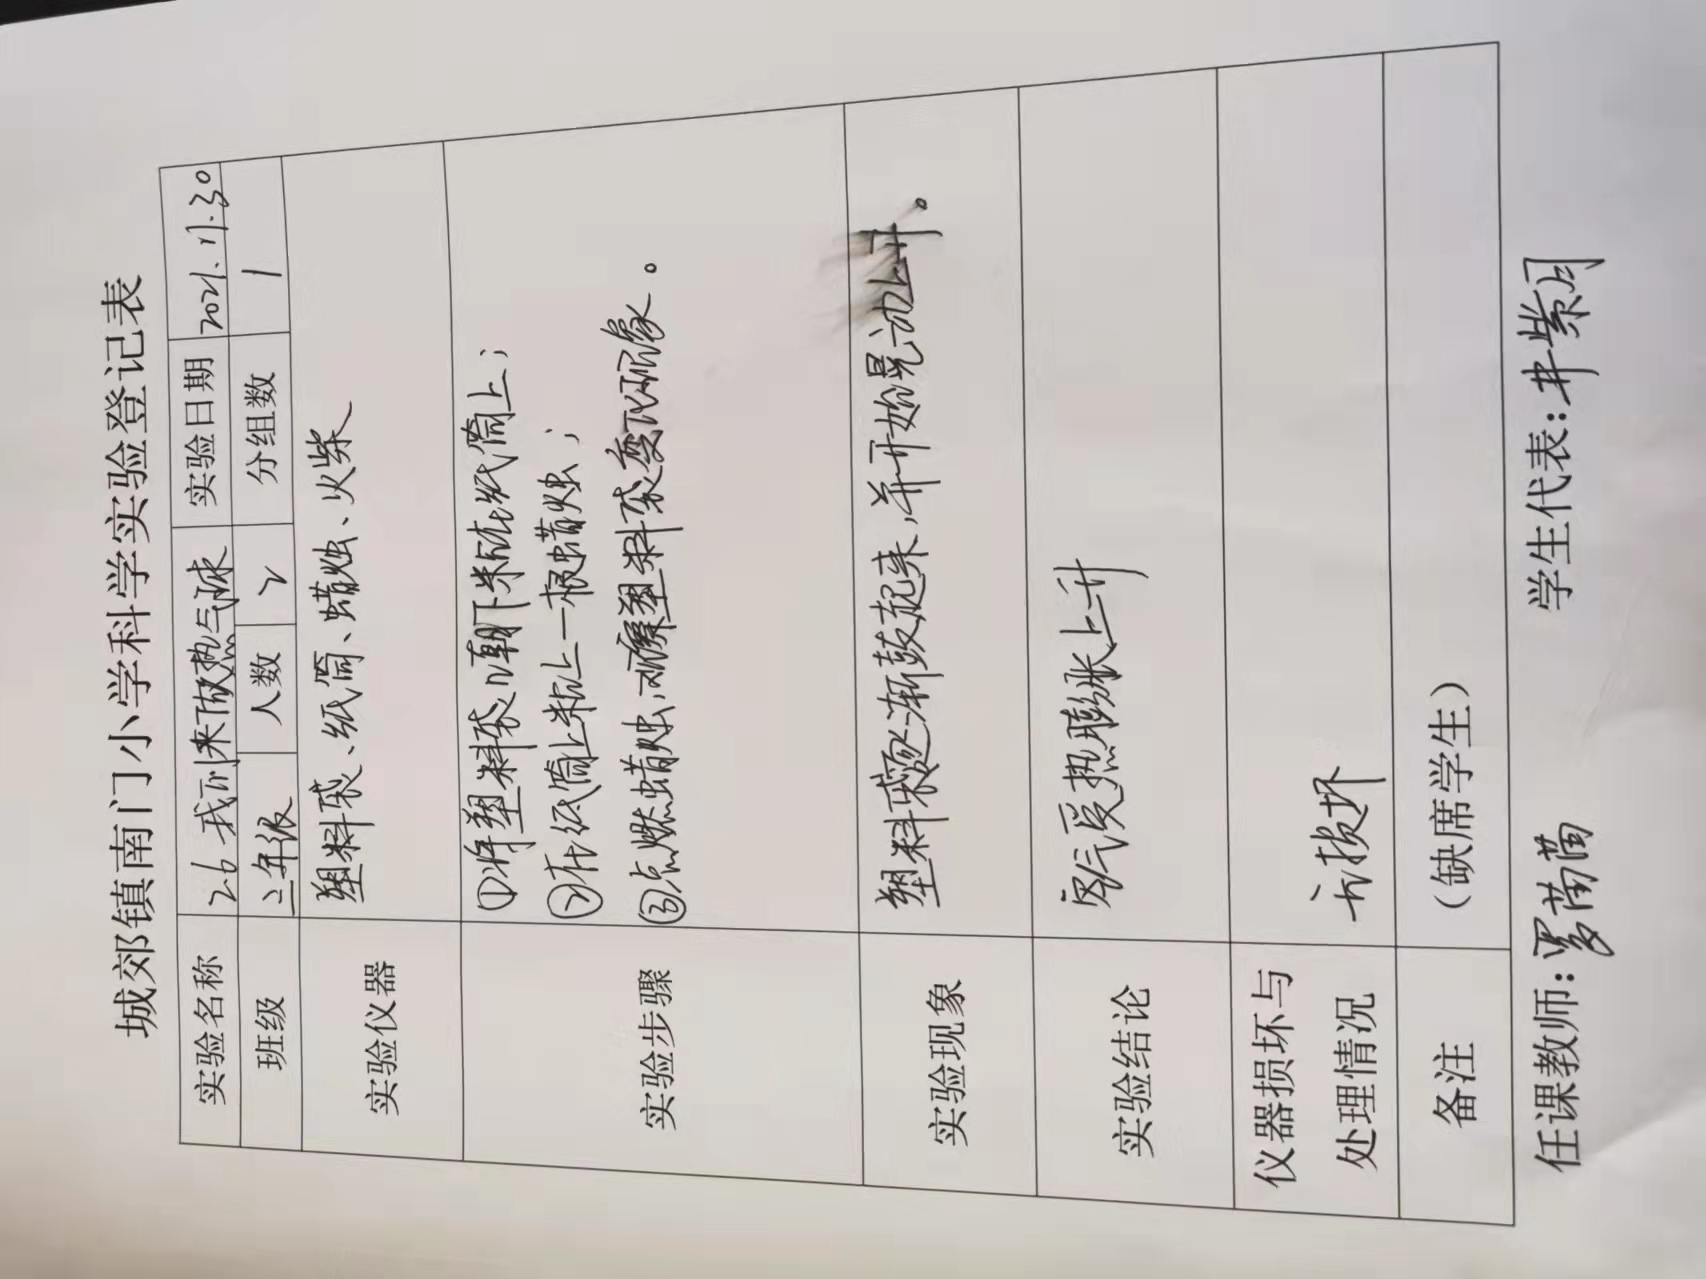 城郊镇南门小学科学实验登记表
实验名称 2.6 我们来做热气球 实验日期 2021.11.30
班级 三年级 人数 2 分组数 1
实验仪器 塑料袋、纸筒、蜡烛、火柴
实验步骤
①将塑料袋口朝下粘在纸筒上；
②在纸筒上粘上一根蜡烛；
③点燃蜡烛，观察塑料袋变化现象。
实验现象 塑料袋逐渐鼓起来，并开始晃动上升。
实验结论 空气受热膨胀上升
仪器损坏与
处理情况 无损坏
备注 （缺席学生）
任课教师：罗萌萌 学生代表：井紫